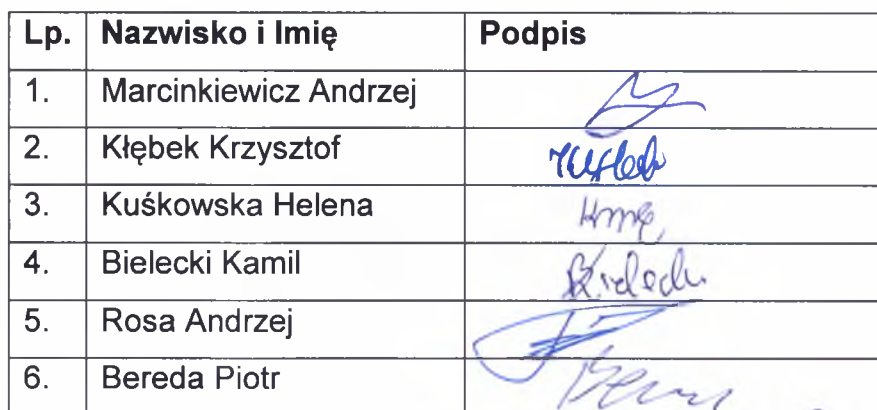 Lp. Nazwisko i Imię Podpis
1. Marcinkiewicz Andrzej
2. Kłębek Krzysztof
3. Kuśkowska Helena
4. Bielecki Kamil
5. Rosa Andrzej
6. Bereda Piotr